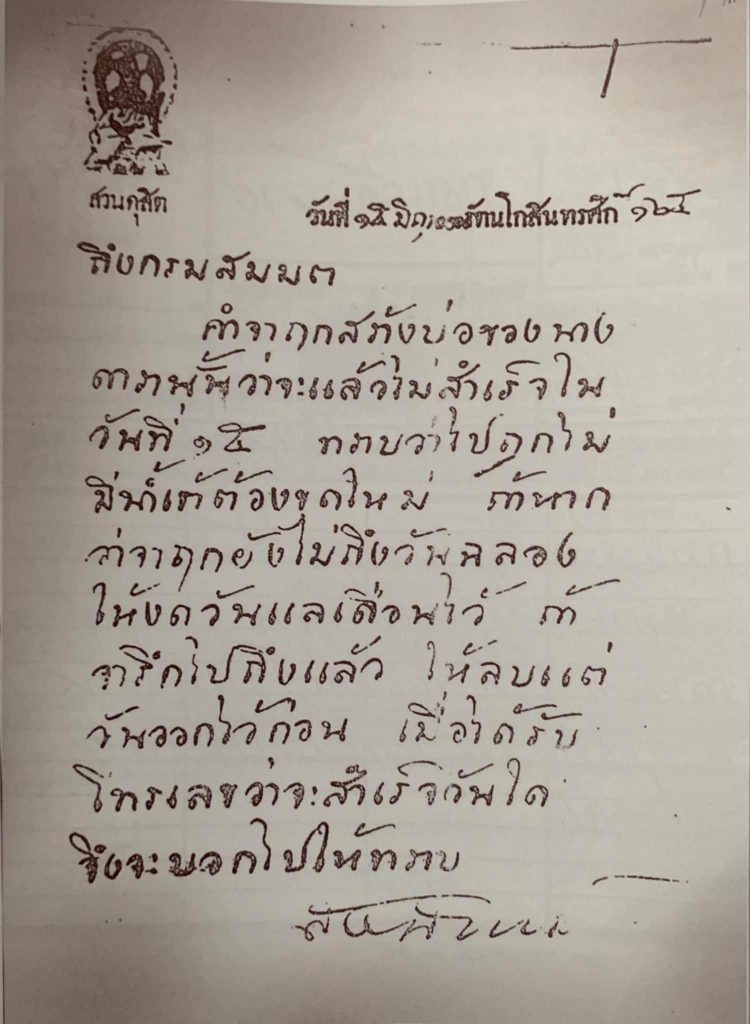 สวนดุสิต
วันที่ ๑๕ มิถุนายน รัตนโกสินทรศก ๑๒๕
ถึงกรมสมมต
คำจาฤกสร้างบ่อของนาง
ดารานั้นว่าจะแล้วไม่สำเร็จใน
วันที่ ๑๕ ทราบว่าไปถูกไม่
มีน้ำเข้าต้องขุดใหม่ ถ้าหาก
ว่าจาฤกยังไม่ถึงวันฉลอง
ให้งดวันแลเดือนไว้ ถ้า
จารึกไปถึงแล้ว ให้ลบแต่
วันออกไว้ก่อน เมื่อได้รับ
โทรเลขว่าจะสำเร็จวันใด
จึงจะบอกไปให้ทราบ